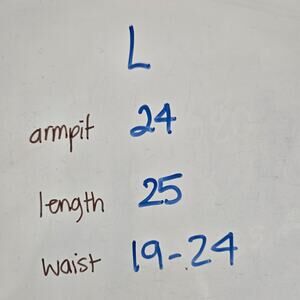 L
armpit 24
length 25
waist 19-24